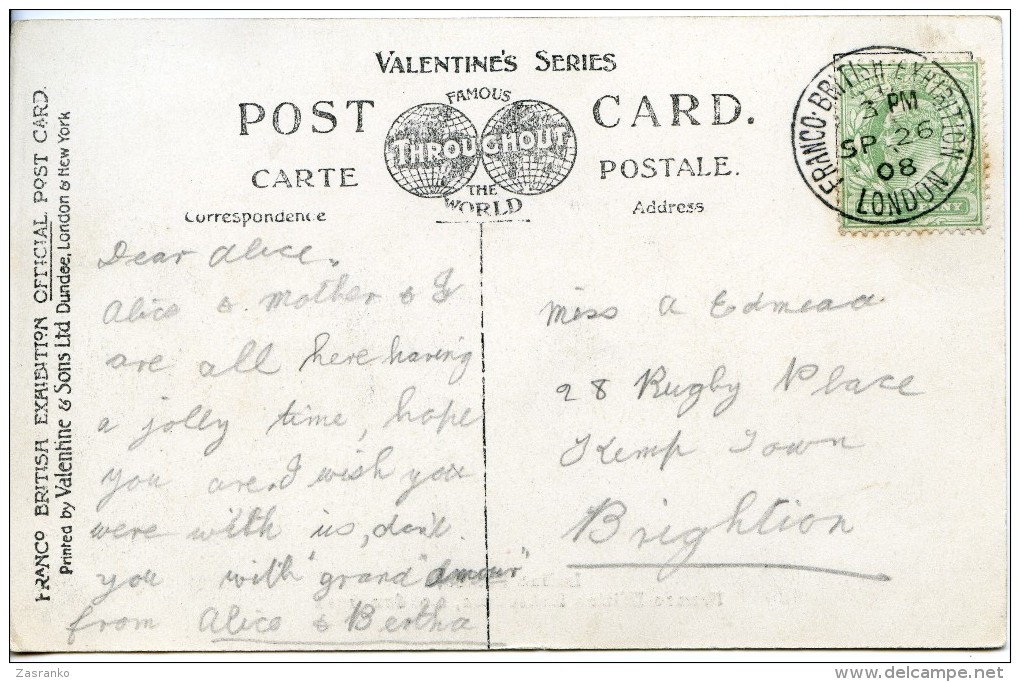 VALENTINE'S SERIES
POST CARD.
FAMOUS
THROUGHOUT
THE
WORLD
CARTE POSTALE.
Correspondence
Address
FRANCO·BRITISH·EXHIBITION
3 PM
SP 26
08
LONDON
FRANCO BRITISH EXHIBITION OFFICIAL POST CARD.
Printed by Valentine & Sons Ltd Dundee, London & New York
Dear Alice.
Alice & Mother & I
are all here having
a jolly time, hope
you are & I wish you
were with us, don't
you with "grand amour"
from Alice & Bertha
Miss A Edmead
28 Rugby Place
Kemp Town
Brightion
Zasranko
delcampe.net